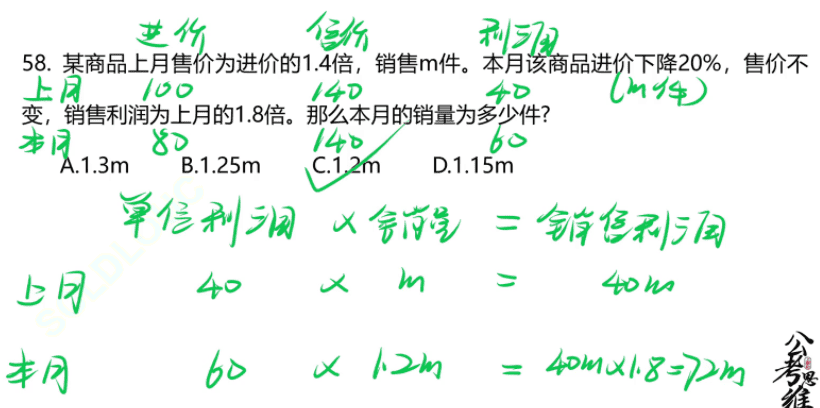 进价 售价 利润
58. 某商品上月售价为进价的1.4倍，销售m件。本月该商品进价下降20%，售价不
上月 100 140 40 (m件)
变，销售利润为上月的1.8倍。那么本月的销量为多少件?
本月 80 140 60
A.1.3m B.1.25m C.1.2m D.1.15m
单位利润 × 销量 = 销售利润
上月 40 × m = 40m
本月 60 × 1.2m = 40m×1.8=72m
公考思维